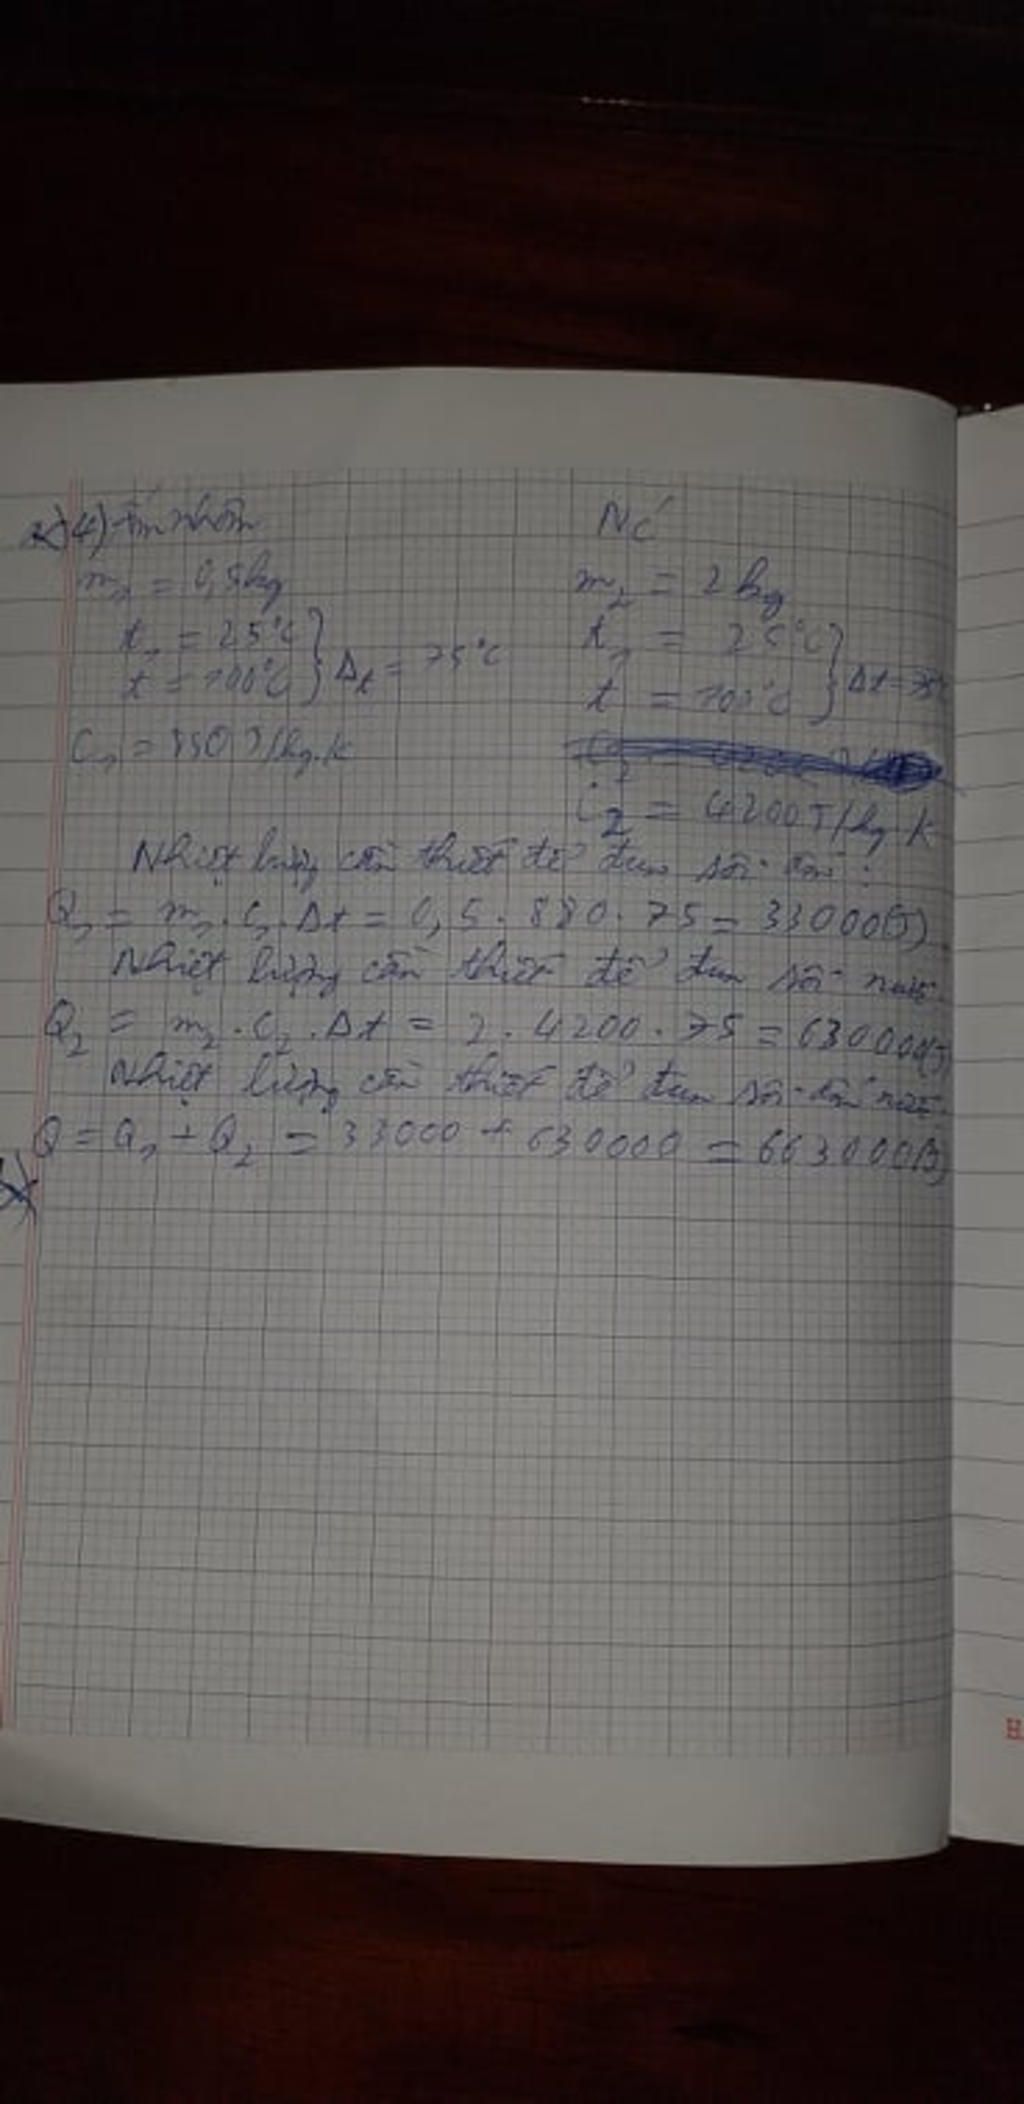 4) ấm nhôm
Nc
m₁ = 0,5kg
m₂ = 2kg
t₁ = 25°C
t = 100°C } Δt = 75°C
t₁ = 25°C
t = 100°C } Δt = 75°C
C₁ = 880 J/kg.k
C₂ = 4200J/kg.k
Nhiệt lượng cần thiết để đun sôi ấm:
Q₁ = m₁.C₁.Δt = 0,5.880.75 = 33000(J)
Nhiệt lượng cần thiết để đun sôi nước
Q₂ = m₂.C₂.Δt = 2.4200.75 = 630000(J)
Nhiệt lượng cần thiết để đun sôi ấm nước
Q = Q₁ + Q₂ = 33000 + 630000 = 663000(J)
H